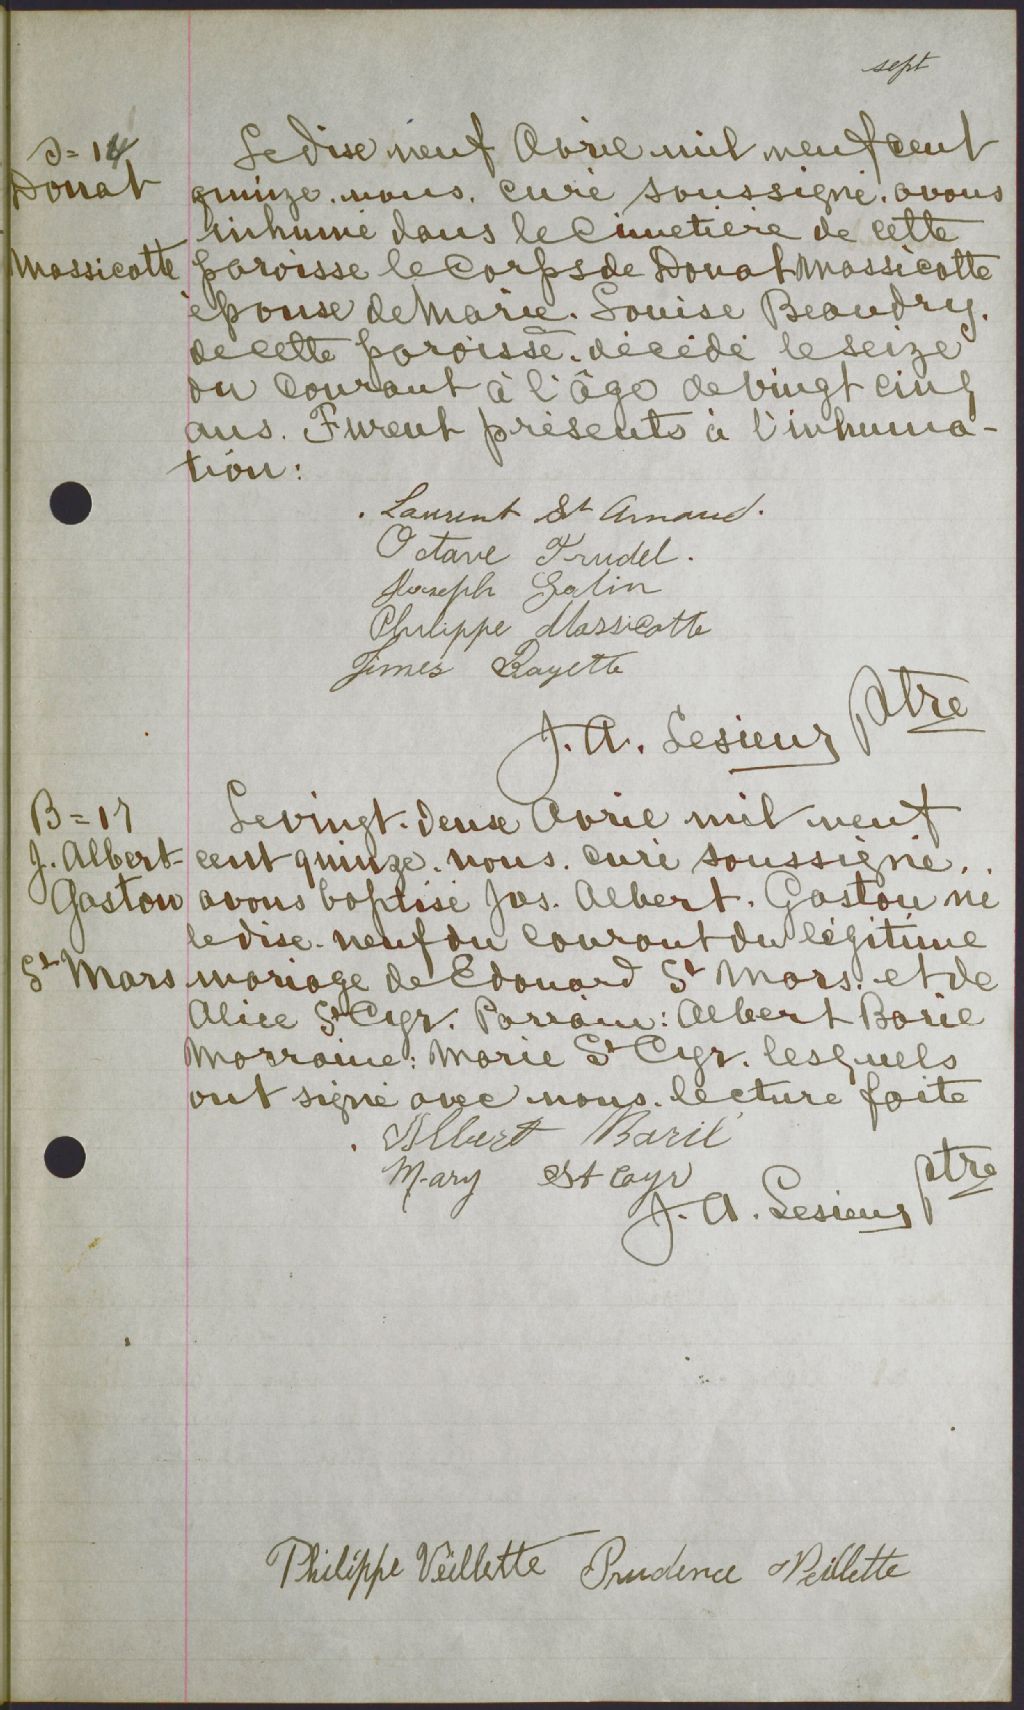 sept
S = 14
Donat
Massicotte
Le dise neuf Avril mil neuf cent
quinze. nous. curé soussigné. avons
inhumé dans le Cimetière de cette
paroisse le Corps de Donat Massicotte
épouse de Marie. Louise Beaudry.
de cette paroisse. décédé le seize
du Courant à l'âge de vingt cinq
ans. Furent présents à l'inhuma-
tion:
Laurent St Arnaud.
Octave Trudel.
Joseph
Philippe Massicotte
James Rayette
J. A. Lesieur ptre
B = 17
J. Albert-
Gaston
St Mars
Le vingt. deux Avril mil neuf
cent quinze. nous. curé soussigné.
avons baptisé Jos. Albert. Gaston né
le dise. neuf du Courant du légitime
mariage de Edouard St Mars. et de
Alice St Cyr. Parrain: Albert Baril
Marraine: Marie St Cyr. lesquels
ont signé avec nous. lecture faite
Albert Baril
Mary St Cyr
J. A. Lesieur ptre
Philippe Veillette Prudence Veillette